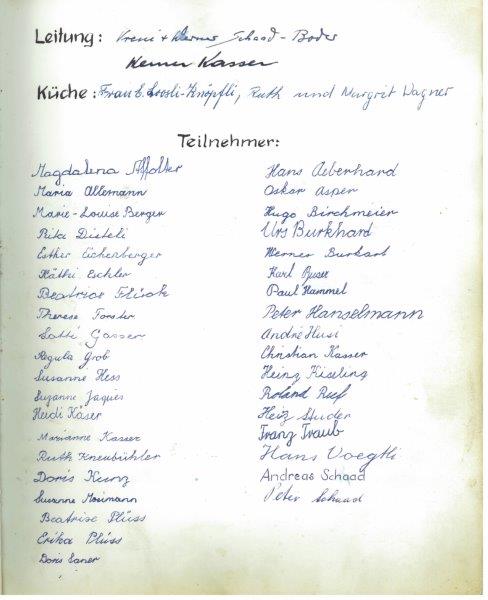 Leitung: Vreni + Werner Schaad-Boder
Werner Kasser
Küche: Frau E. Loosli-Knöpfli, Ruth und Margrit Wagner
Teilnehmer:
Magdalena Affolter
Maria Allemann
Marie-Louise Berger
Rita Disteli
Esther Eichenberger
Käthi Eichler
Beatrice Flück
Therese Forster
Lotti Gasser
Regula Grob
Susanne Hess
Suzanne Jaques
Heidi Käser
Marianne Kasser
Ruth Kneubühler
Doris Kunz
Susanne Mosimann
Beatrise Plüss
Erika Plüss
Doris Saner
Hans Aeberhard
Oskar Asper
Hugo Birchmeier
Urs Burkhard
Werner Burkart
Karl Buser
Paul Hammel
Peter Hanselmann
André Husi
Christian Kasser
Heinz Kissling
Roland Ruf
Heiz Studer
Franz Traub
Hans Voegtli
Andreas Schaad
Peter Schaad